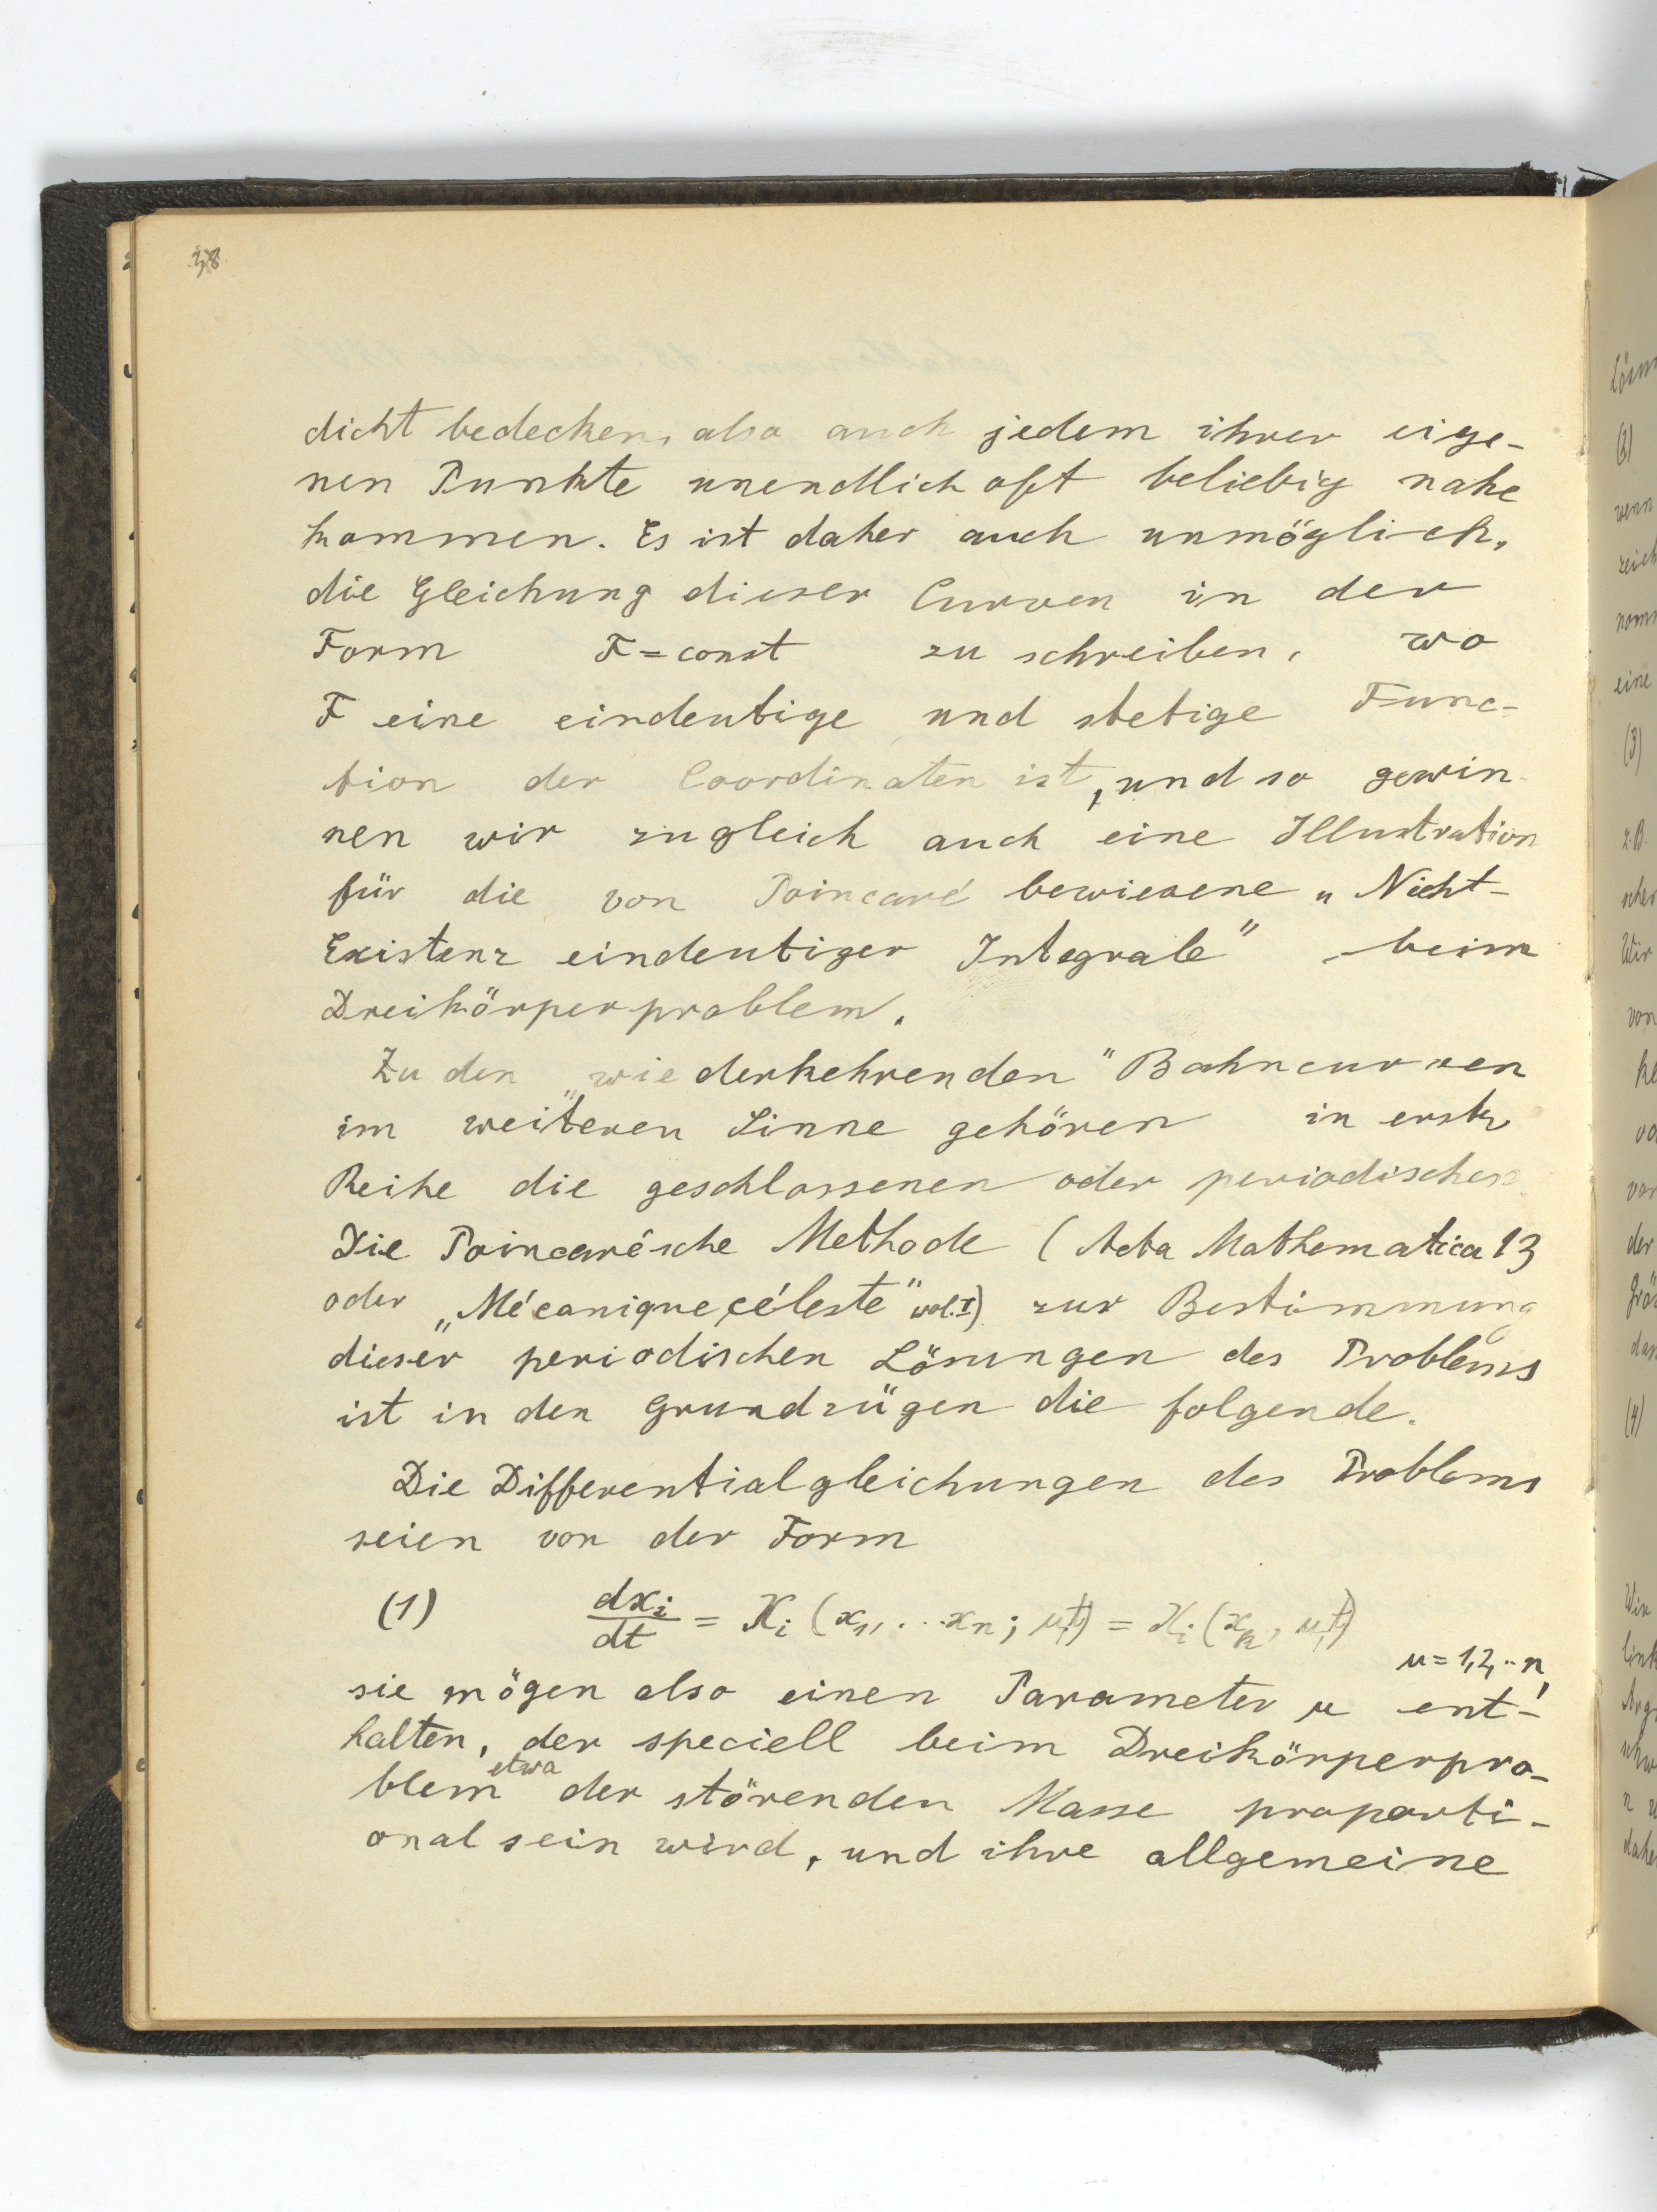 38
dicht bedecken, also auch jedem ihrer eige-
nen Punkte unendlich oft beliebig nahe
kommen. Es ist daher auch unmöglich,
die Gleichung dieser Curven in der
Form F = const zu schreiben, wo
F eine eindeutige und stetige Func-
tion der Coordinaten ist, und so gewin-
nen wir zugleich auch eine Illustration
für die von Poincaré bewiesene „Nicht-
Existenz eindeutiger Integrale" beim
Dreikörperproblem.
Zu den „wiederkehrenden" Bahncurven
im weiteren Sinne gehören in erster
Reihe die geschlossenen oder periodischen
Die Poincaré'sche Methode (Acta Mathematica 13
oder „Mécanique céleste" vol. I) zur Bestimmung
dieser periodischen Lösungen des Problems
ist in den Grundzügen die folgende.
Die Differentialgleichungen des Problems
seien von der Form
(1) dx_i/dt = X_i (x_1, ... x_n; μ, t) = X_i (x_k, μ, t)
μ = 1, 2, .. n,
sie mögen also einen Parameter μ ent-
halten, der speciell beim Dreikörperpro-
blem etwa der störenden Masse proporti-
onal sein wird, und ihre allgemeine
Lösun
(2)
wenn
(3)
z.B.
Wir
von
der
(4)
Wir